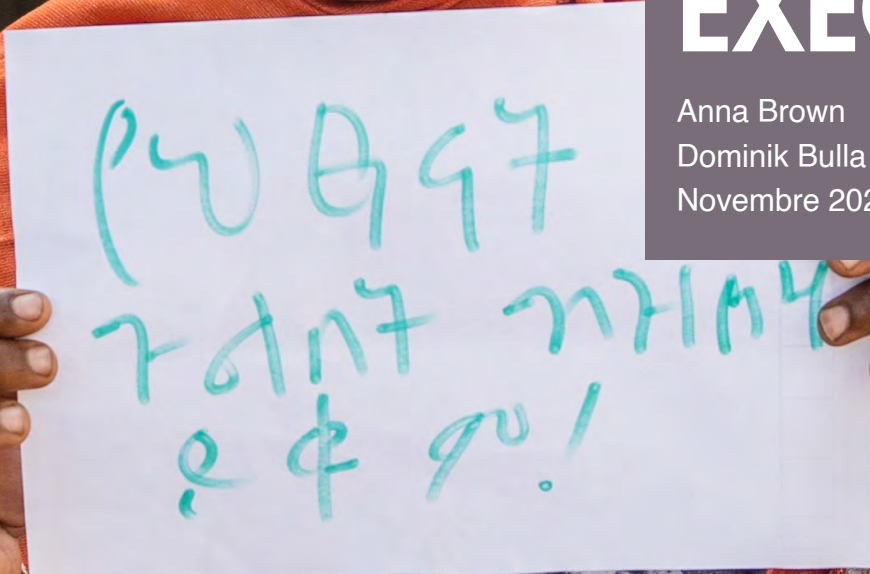 EXEC
Anna Brown
Dominik Bulla
Novembre 202
የህፃናት
ጉልበት
ይቁም!